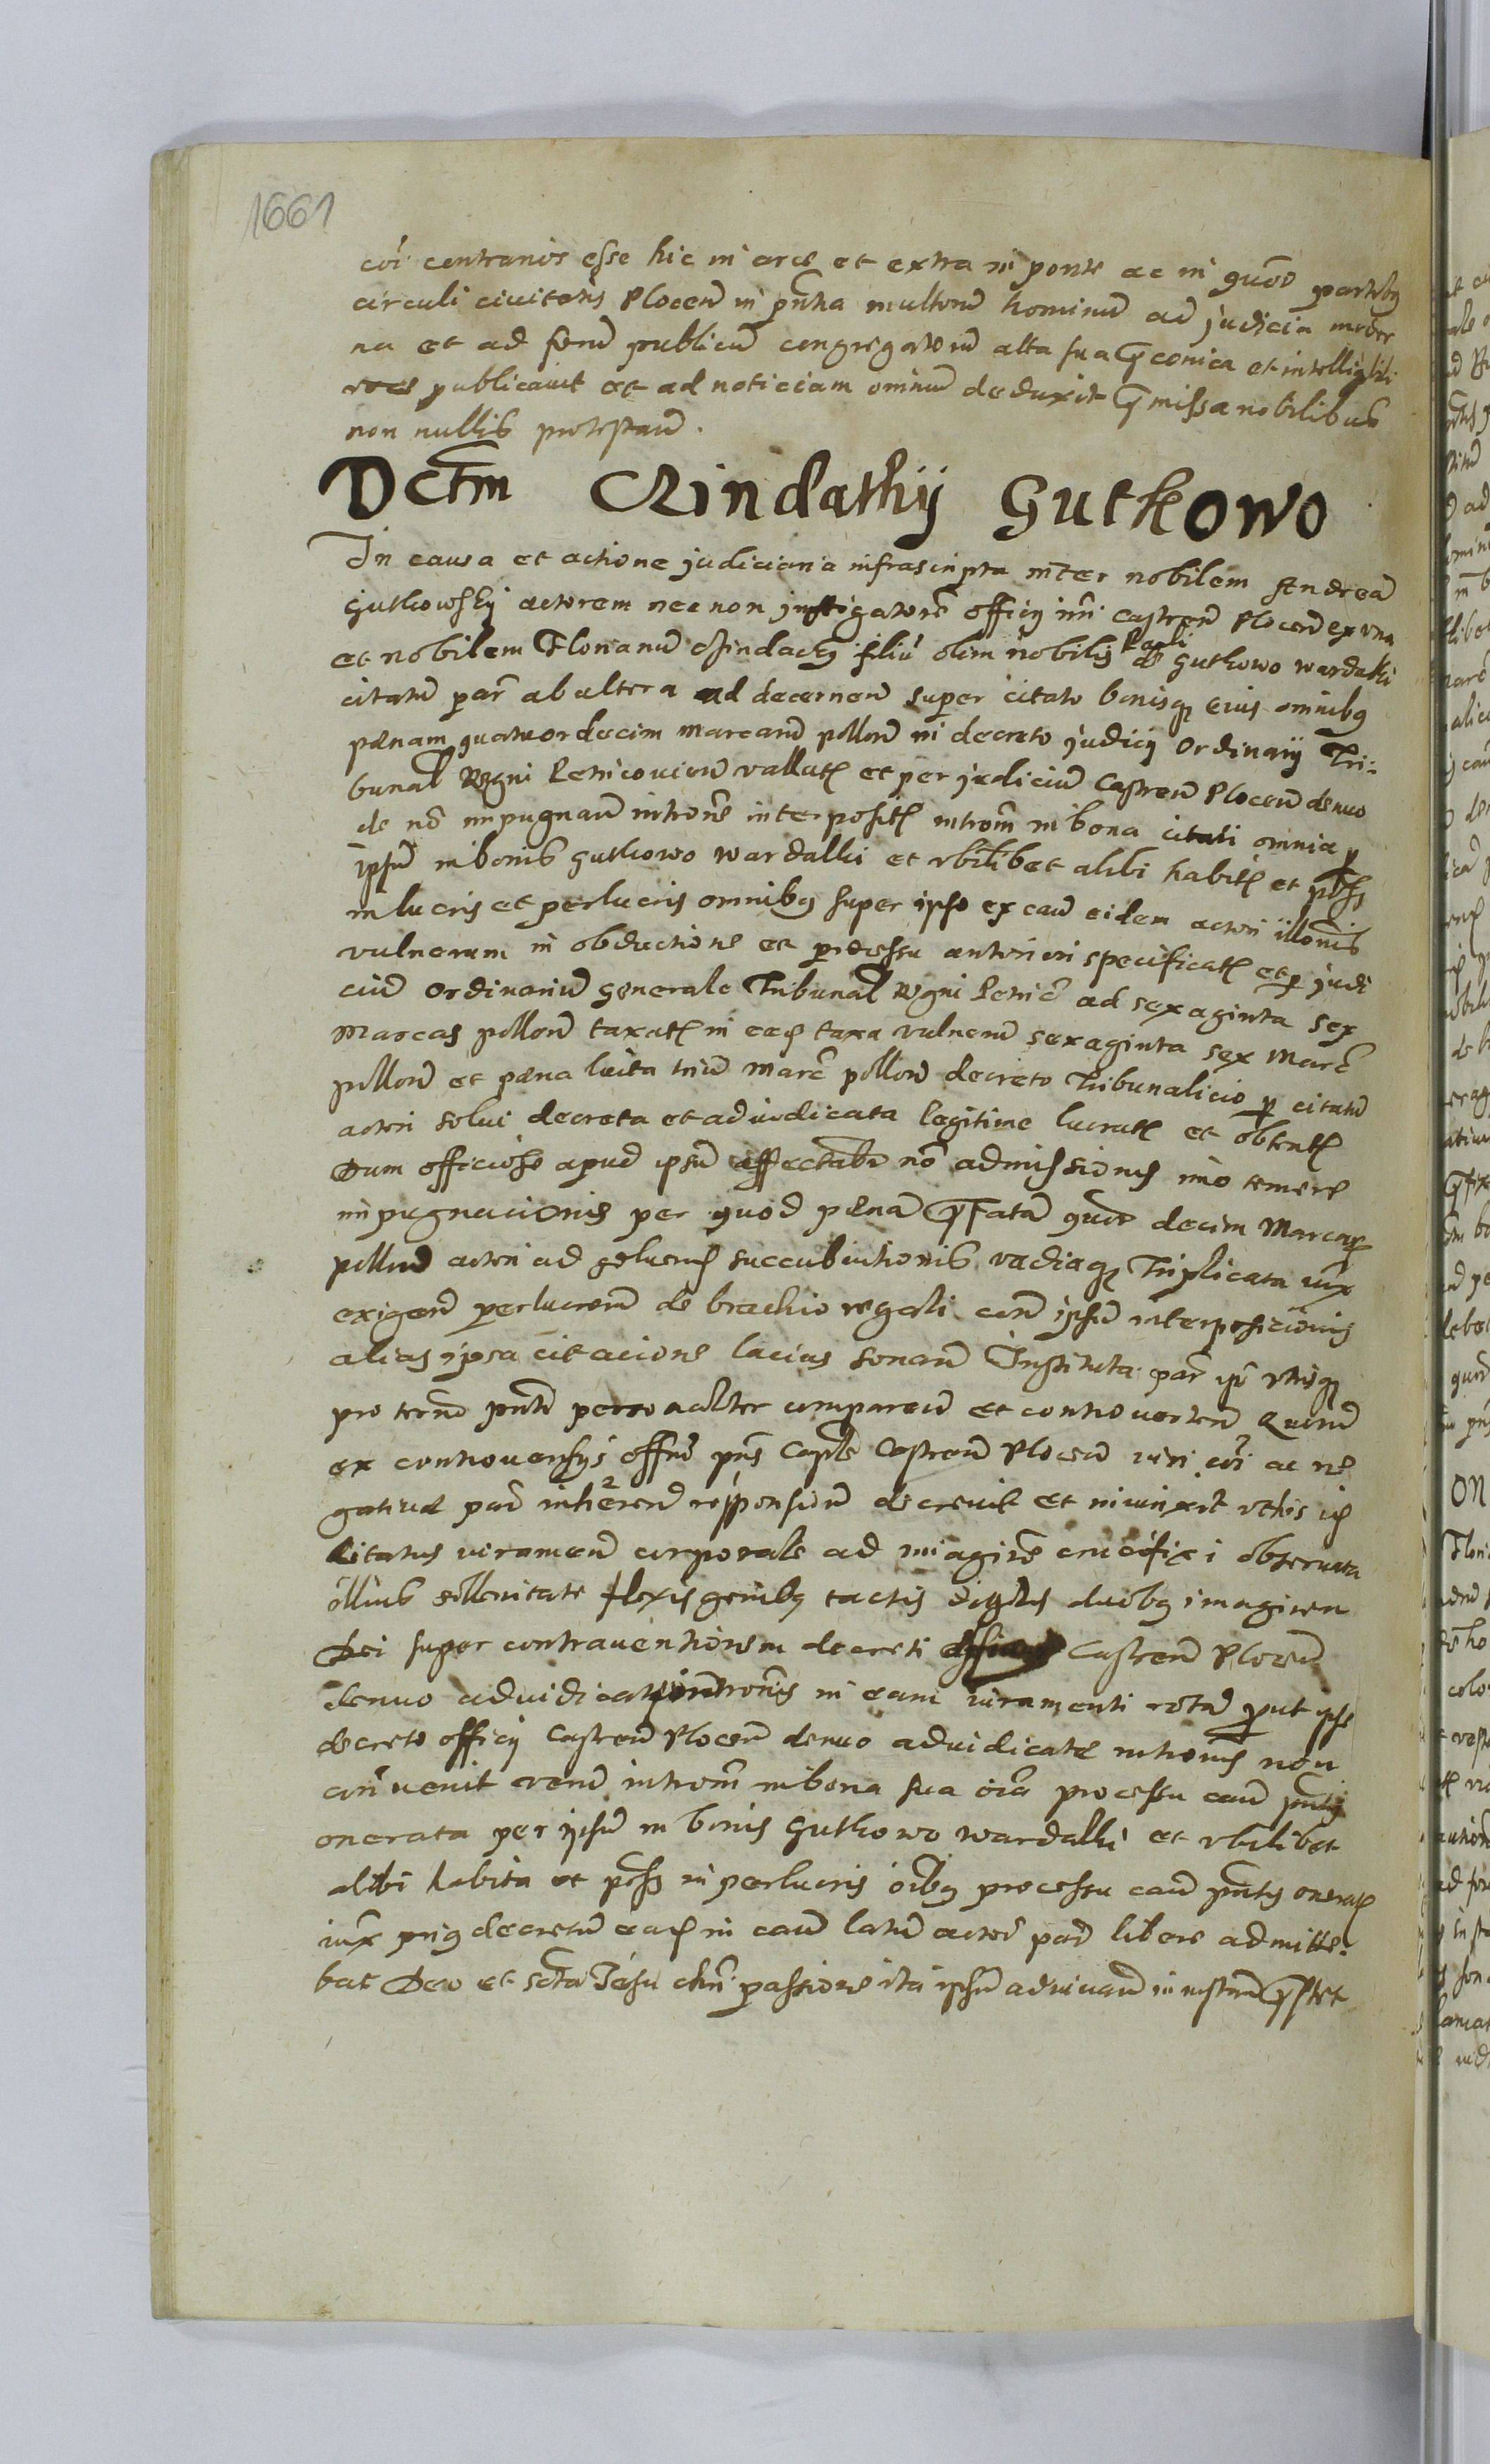 1661
cõi contranis esse hic in arce et extra in ponte ac in quõs partibus
circuli civitatis Plocen in pñtia multorum hominum ad judicia moder
na et ad forum publicum congregatorum alta sua praeconica et intelligibili
voce publicavit et ad noticiam omnium deduxit praemissa nobilibus
non nullis protestan.
Dctm Gutkowo
In causa et actione judiciaria infrascripta inter nobilem Andream
Gutkowsky actorem nec non instigatorem officii ñri Castren Plocen ex una
et nobilem Florianum filium olim nobilis Pauli de Gutkowo wardaki
citatum par ab altera ad decernen super citato bonisque eius omnibus
paenam quatuordecim marcarum pollon in decreto judicii Ordinarii Tri:
bunal Regni Petricovien vallatam et per judicium Castren Plocen denuo
de nõ impugnan introñe interpositam introm in bona citati omnia per
ipsum in bonis Gutkowo wardakki et ubilibet alibi habita et poss
in lucris et perlucris omnibus super ipso ex caũ eidem actori illonis
vulnerum in obductione et processu anteriori specificat et per judi
cium ordinarium generale Tribunal Regni Petric ad sexaginta sex
marcas pollon taxat in eaq taxa vulnerum sexaginta sex marc
pollon et paena luita trium marc pollon decreto Tribunalicio per citatum
actori solui decreta et adiudicata legitime lucrat et obtent
Dum officiose apud ipsum affectabr nõ admissionis imo temere
impugnacionis per quod paenam praefatam quor decim Marcar
pollon actori ad solvend succubuitionis vadiaque Triplicata iux
exigen perlucrorum de brachio regali cum ipsum interposicionis
alias ipsa citacione lacius sonan Instituta par ipse utisque
pro termo pñti personaliter comparen et controverten Quarum
ex controversiis offm pñs Capte Castren Plocen iuri cõi ac ne
gativae par inhaeren responsioni decrevit et iniunxit uthic is
Citatus iuramen corporale ad imaginem crucifixi observata
illius sollenitate flexis genibus tactis digitis duobus imaginem
Dei super contraventionem decreti Castren Plocen
denuo adiudicat introñis in eam iuramenti rotam prout ipse
decreto officii Castren Plocen denuo adiudicatae introñis non
contrvenit verum introm in bona sua oĩa processu caũ pñtis
onerata per ipsum in bonis Gutkowo wardakki et ubilibet
alibi habita et poss in perlucris oibus processu caũ pñtis onerat
iux prius decretum eaq in caũ latum actore par libere admitte:
bat Deo et scta Jesu chri passione ita ipsum adiuvan in instan praestet